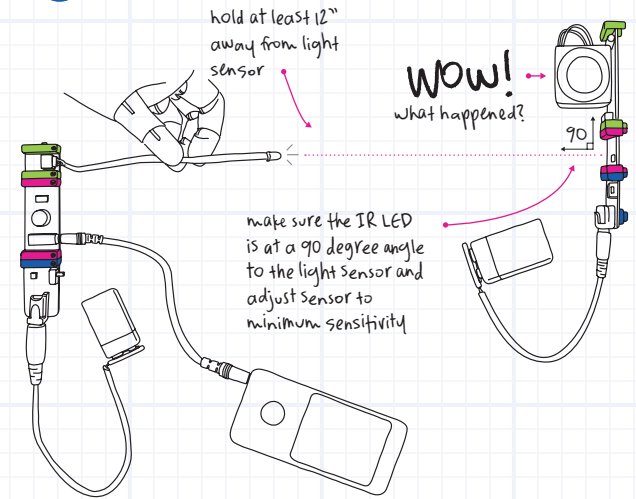 hold at least 12"
away from light
sensor
WOW!
what happened?
90
make sure the IR LED
is at a 90 degree angle
to the light sensor and
adjust sensor to
minimum sensitivity